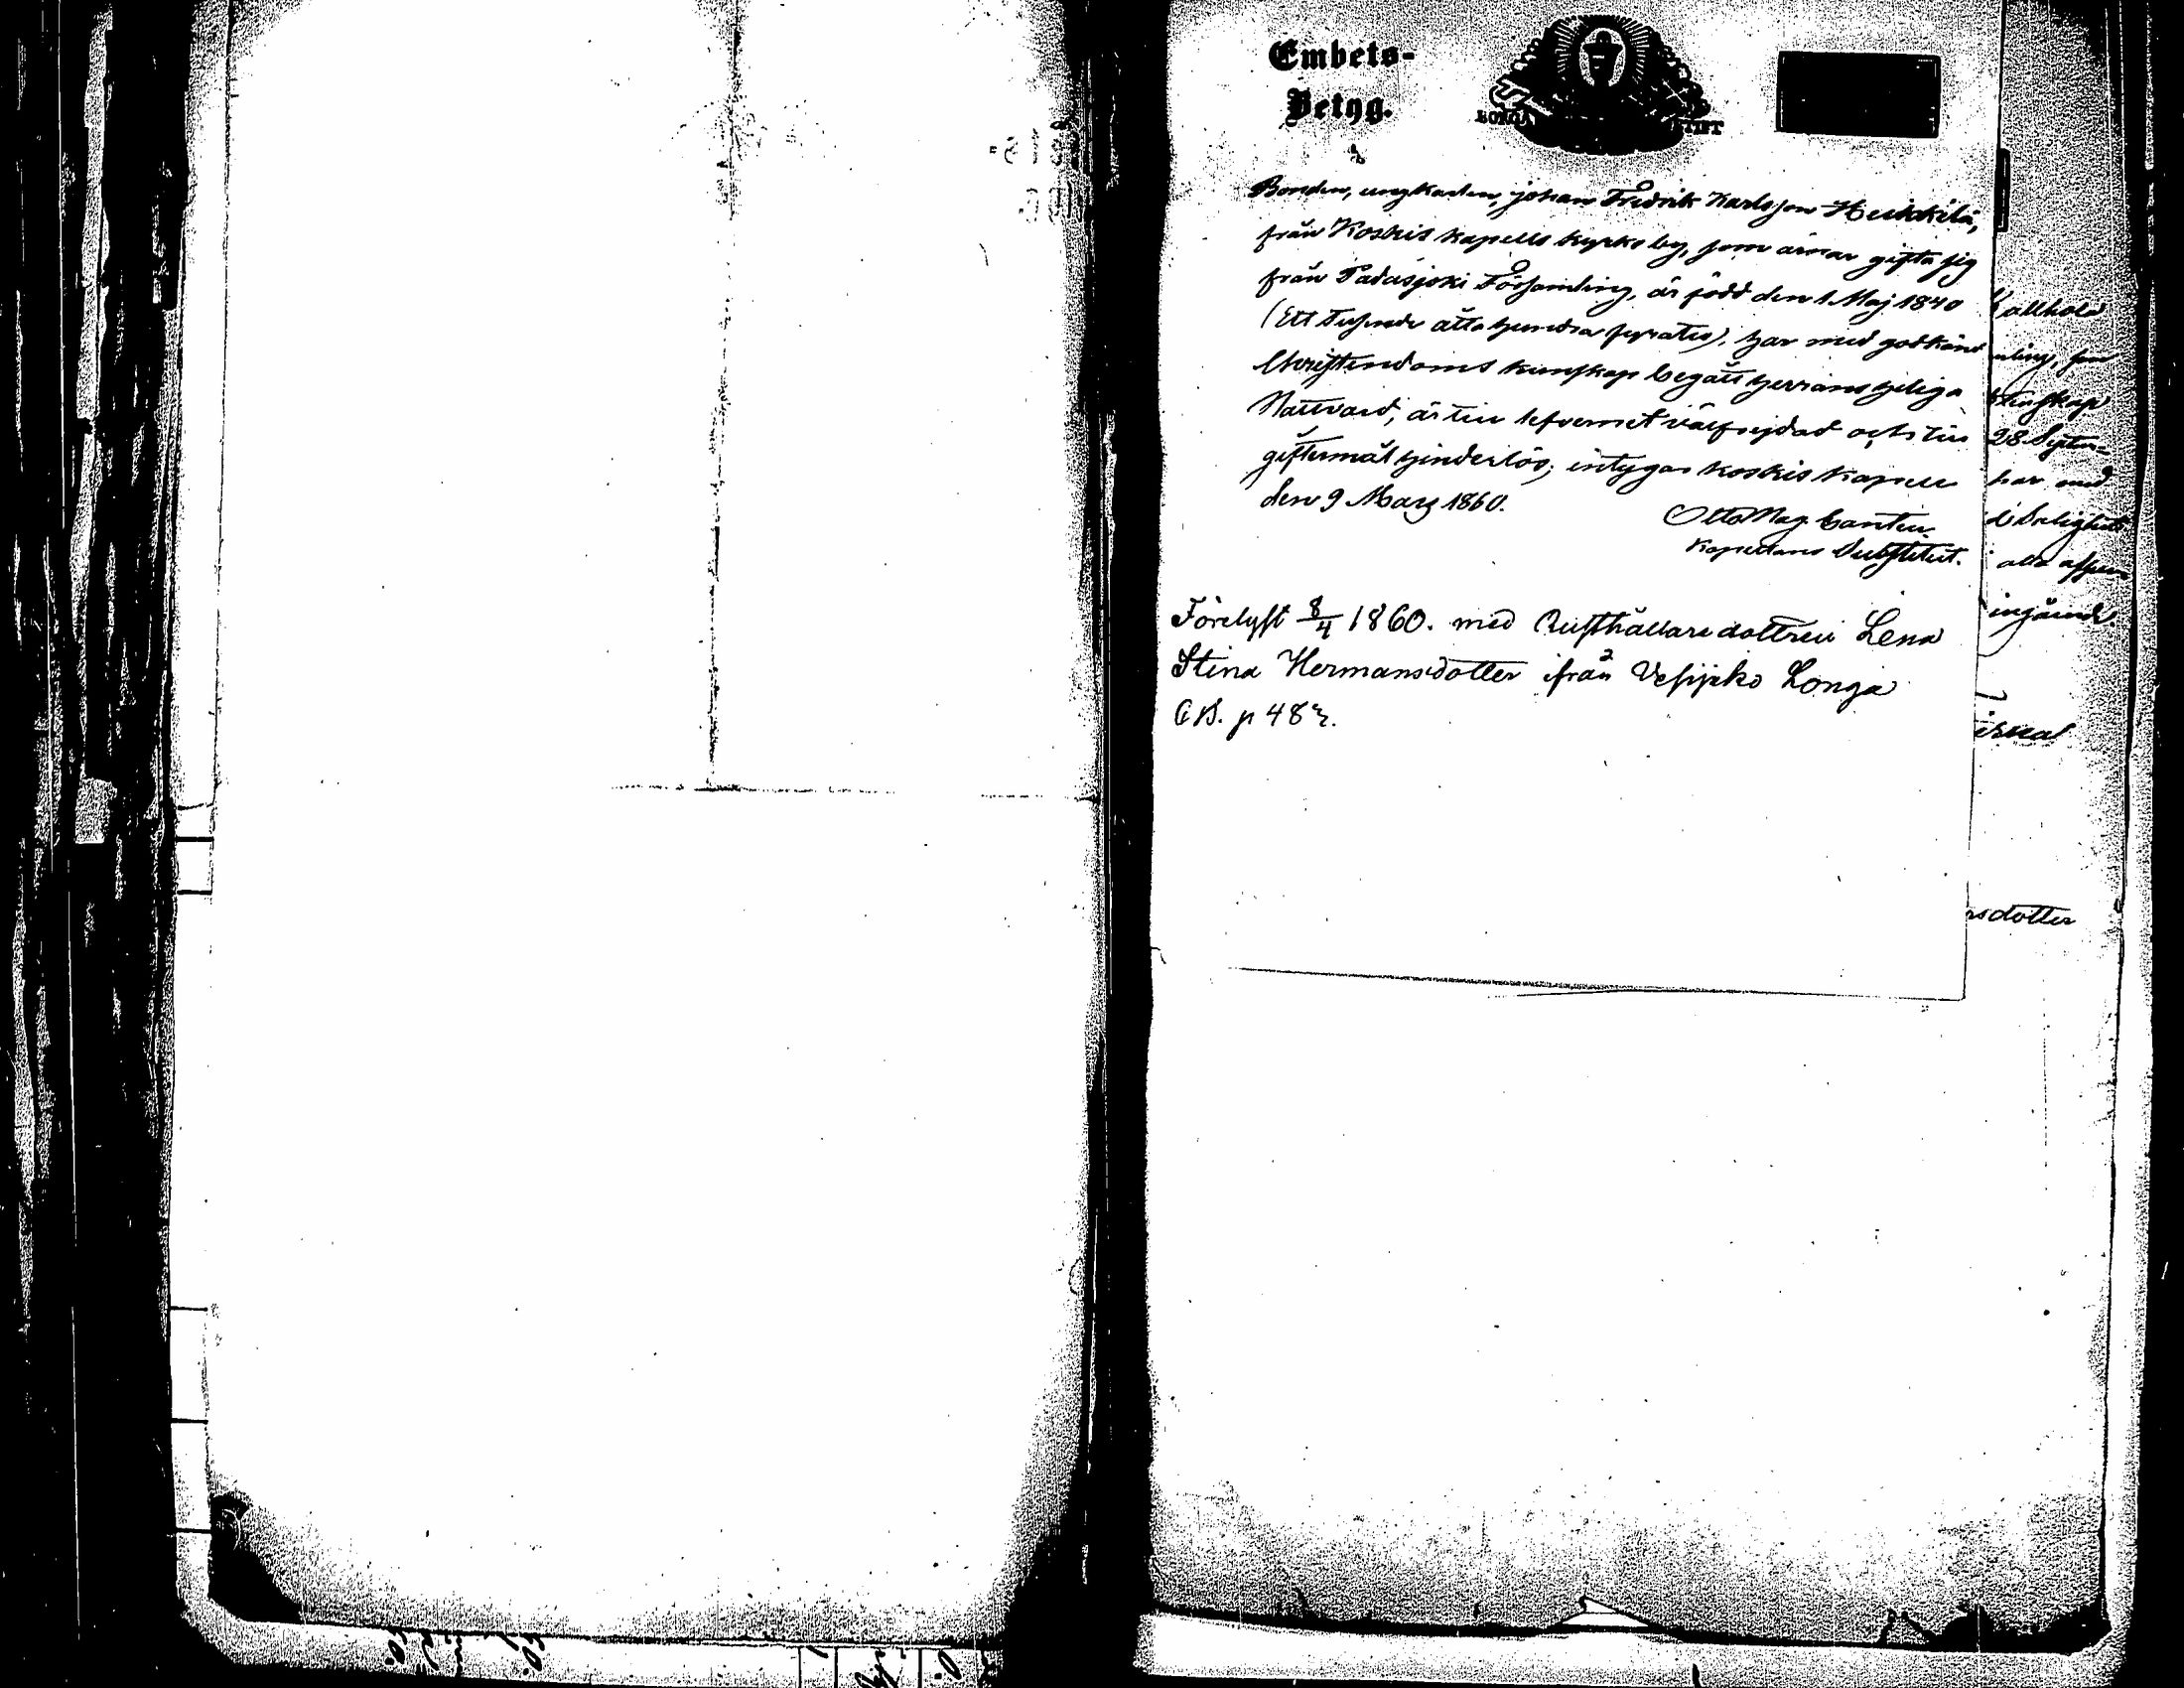 Embets-
Betyg.
BORGÅ STIFT
Bonden, ungkarlen, Johan Fredrik Karlsson Heikkilä,
från Koskis kapells kyrko by, som ärnar gifta sig
från Padasjoki Församling, är född den 1 Maj 1840
(Ett Tusende åtta hundra fyratio), har med godkänd
Christendoms kunskap begått Herrans Heliga
Nattvard, är till lefvernet välfrejdad och till
giftermål hinderlös; intygar Koskis Kapell
den 9 Mars 1860.
Otto Mag.
Kapellans Substitut.
Förelyst 8/4 1860. med Rusthållaredottren Lena
Stina Hermansdotter ifrån Vesijako Longa
C.B. p 482.
28 Septem-
har med
alla
ingående
rsdotter